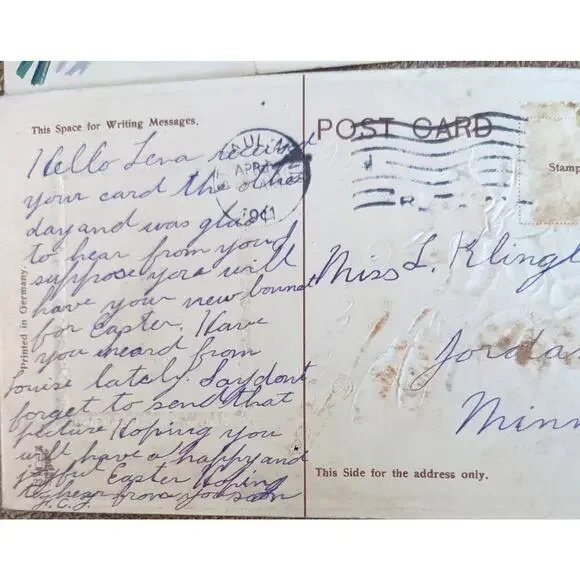 This Space for Writing Messages.
Hello Lena received
your card the other
day and was glad
to hear from you I
suppose you will
have your new bonnet
for Easter. Have
you heard from
Louise lately. Say dont
forget to send that
picture Hoping you
will have a happy and
joyful Easter Hoping
to hear from you soon
Printed in Germany.
PAUL
APR
1911
POST CARD
Stamp
Miss L. Klingl
Jorda
Minn
This Side for the address only.